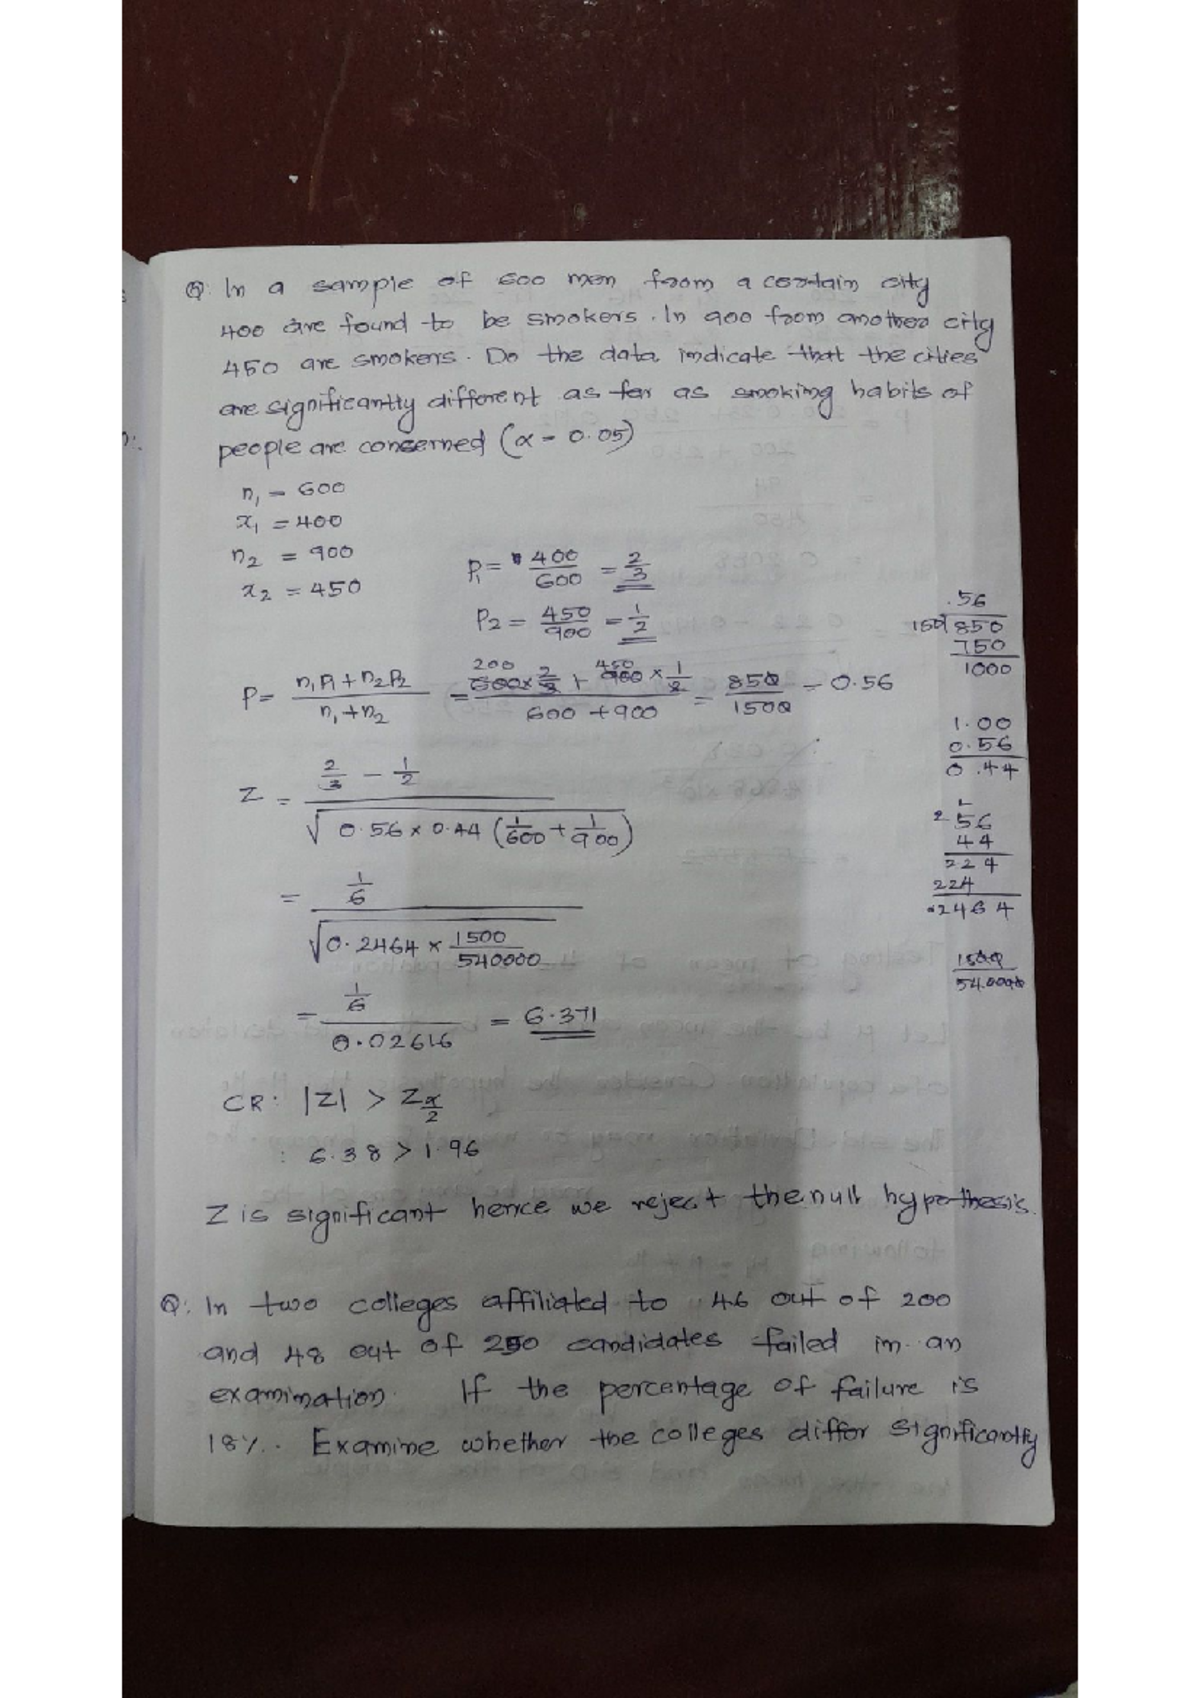 Q: In a sample of 600 men from a certain city
400 are found to be smokers. In 900 from another city
450 are smokers. Do the data indicate that the cities
are significantly different as far as smoking habits of
people are concerned (α = 0.05)
n₁ = 600
x₁ = 400
n₂ = 900
x₂ = 450
P₁ = 400/600 = 2/3
P₂ = 450/900 = 1/2
P = (n₁P₁ + n₂P₂)/(n₁ + n₂) = (600 × 2/3 + 900 × 1/2)/(600 + 900) = 850/1500 = 0.56
200
450
.56
150 850
750
1000
1.00
0.56
0.44
Z = (2/3 − 1/2)/√(0.56 × 0.44 (1/600 + 1/900))
56
44
224
224
.2464
= (1/6)/√(0.2464 × 1500/540000)
1500
540000
= (1/6)/0.02616 = 6.371
CR: |Z| > Zα/2
: 6.38 > 1.96
Z is significant hence we reject the null hypothesis.
Q: In two colleges affiliated to 46 out of 200
and 48 out of 250 candidates failed in an
examination. If the percentage of failure is
18%. Examine whether the colleges differ significantly